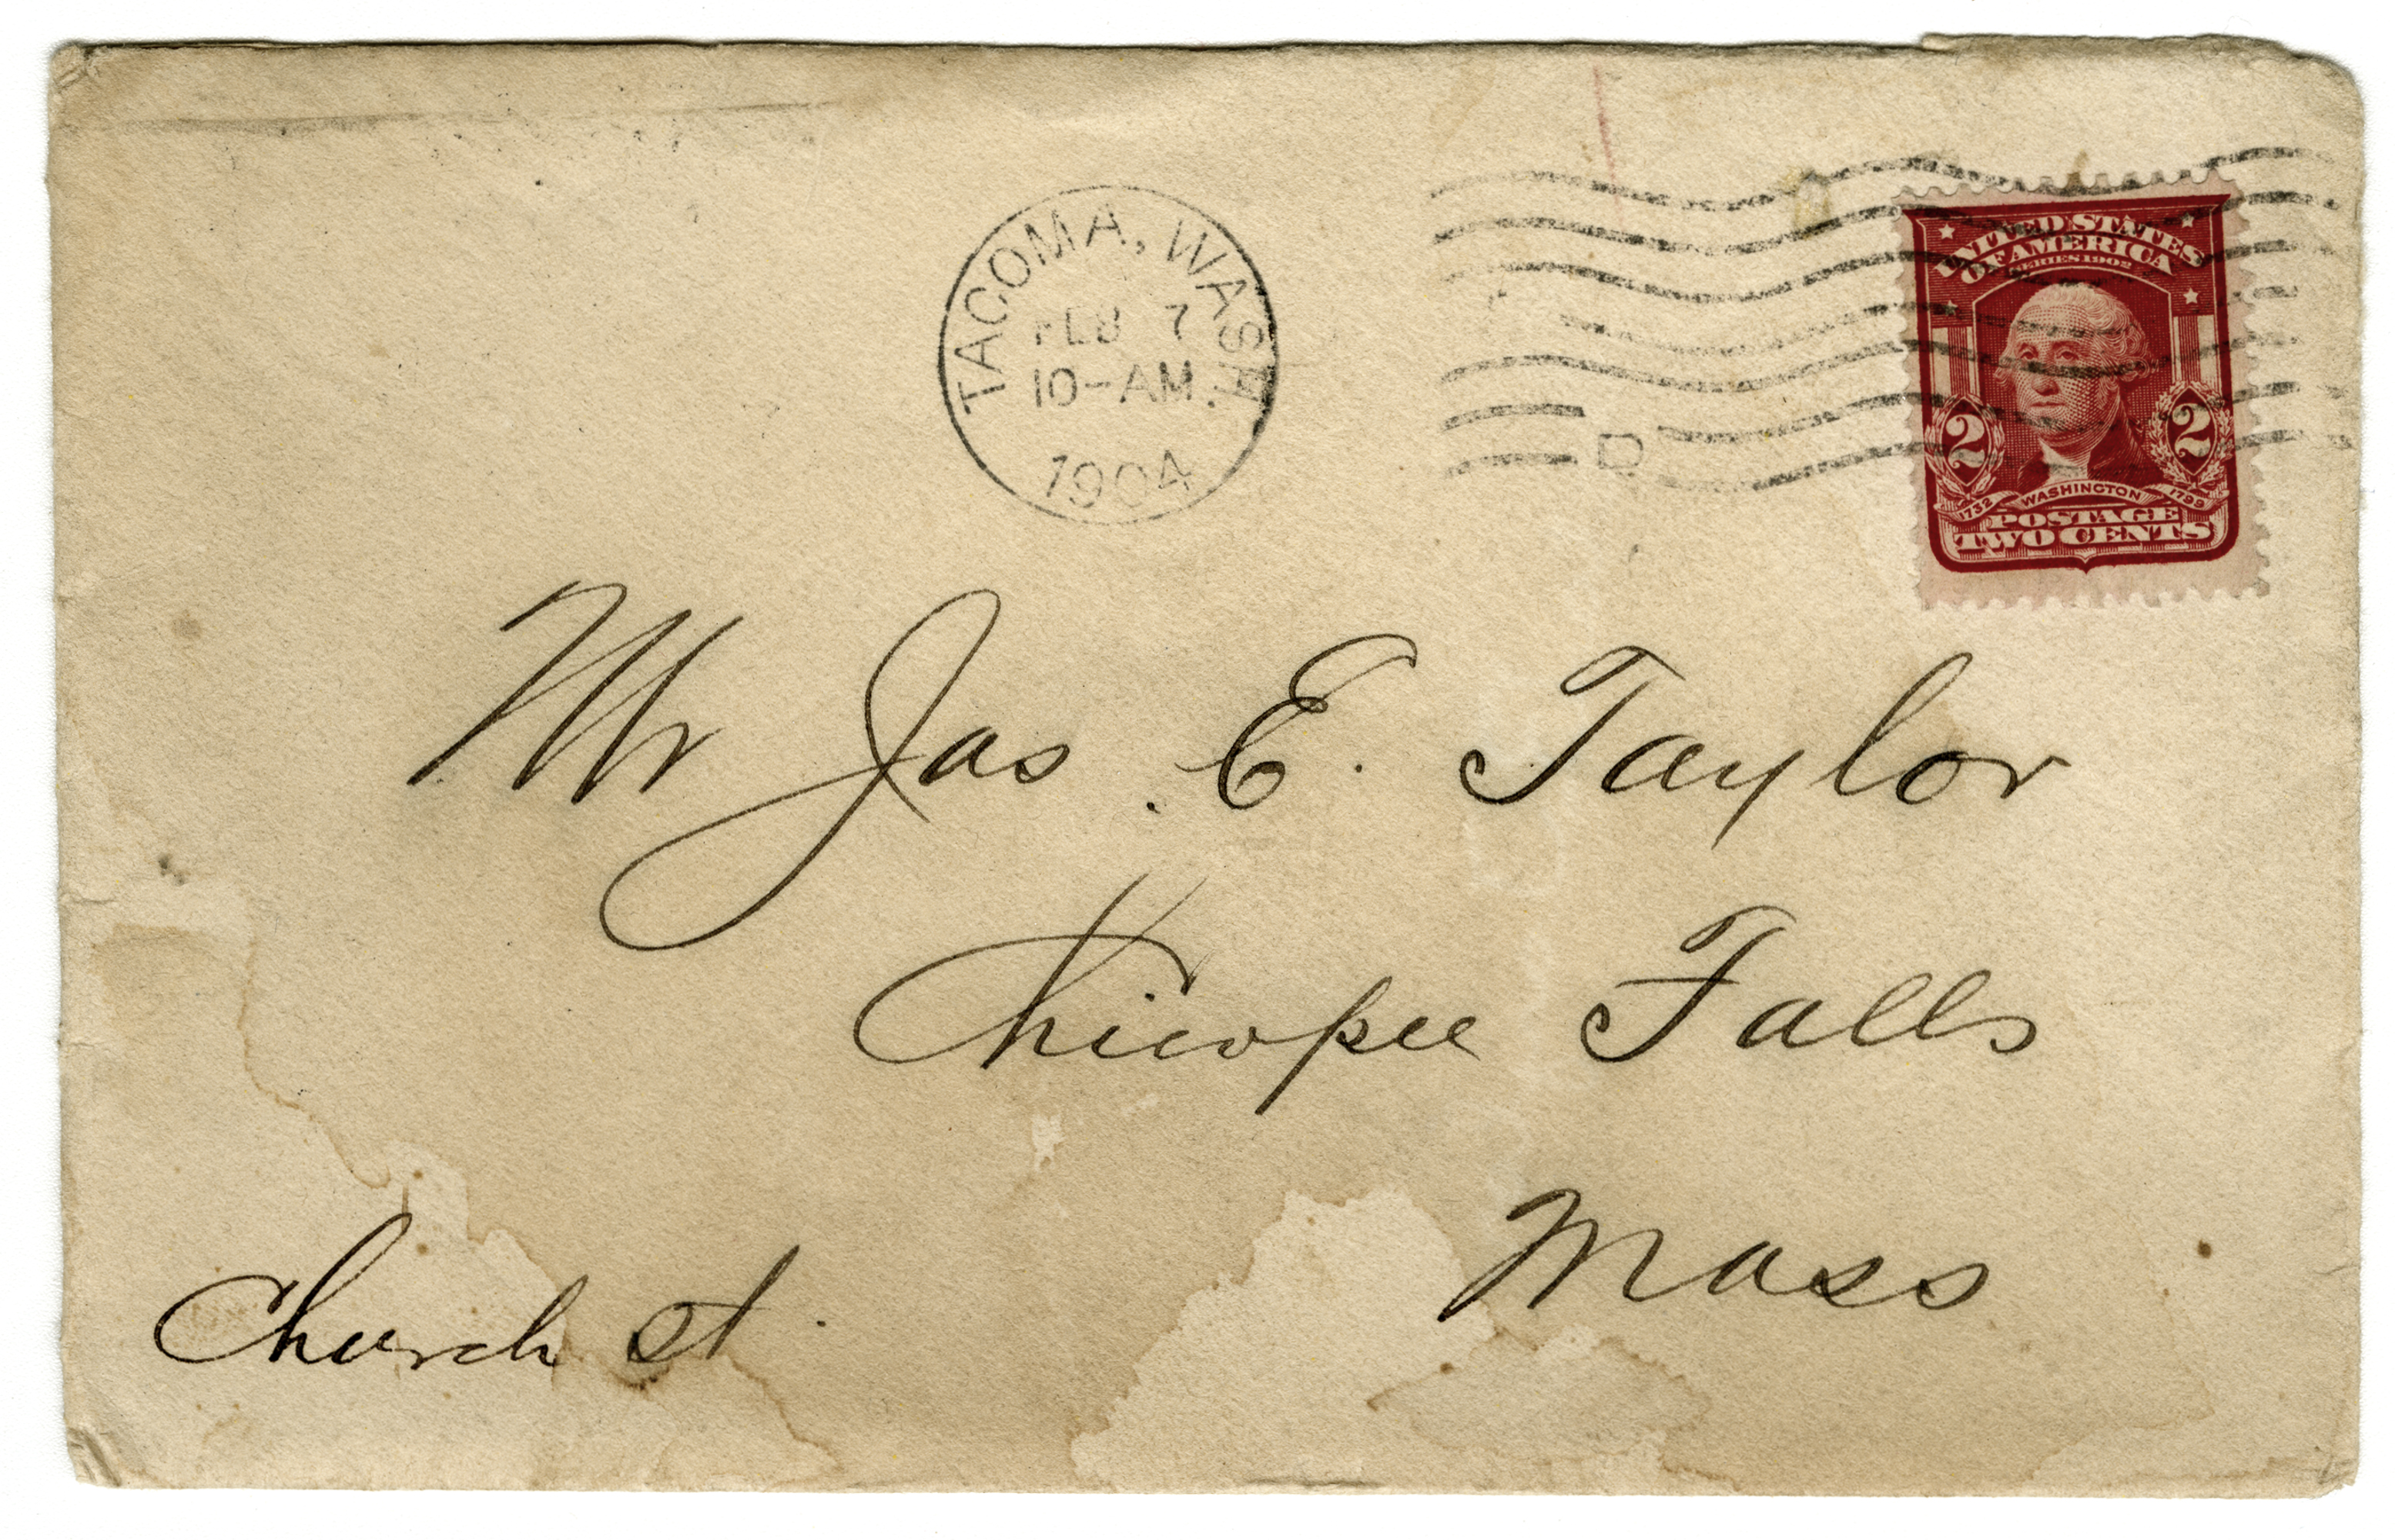 TACOMA, WASH.
FEB 7
10-AM
1904
D
UNITED STATES
OF AMERICA
SERIES 1902
2 2
1732 WASHINGTON 1799
POSTAGE
TWO CENTS
Mr Jas. E. Taylor
Chicopee Falls
Mass
Church st.